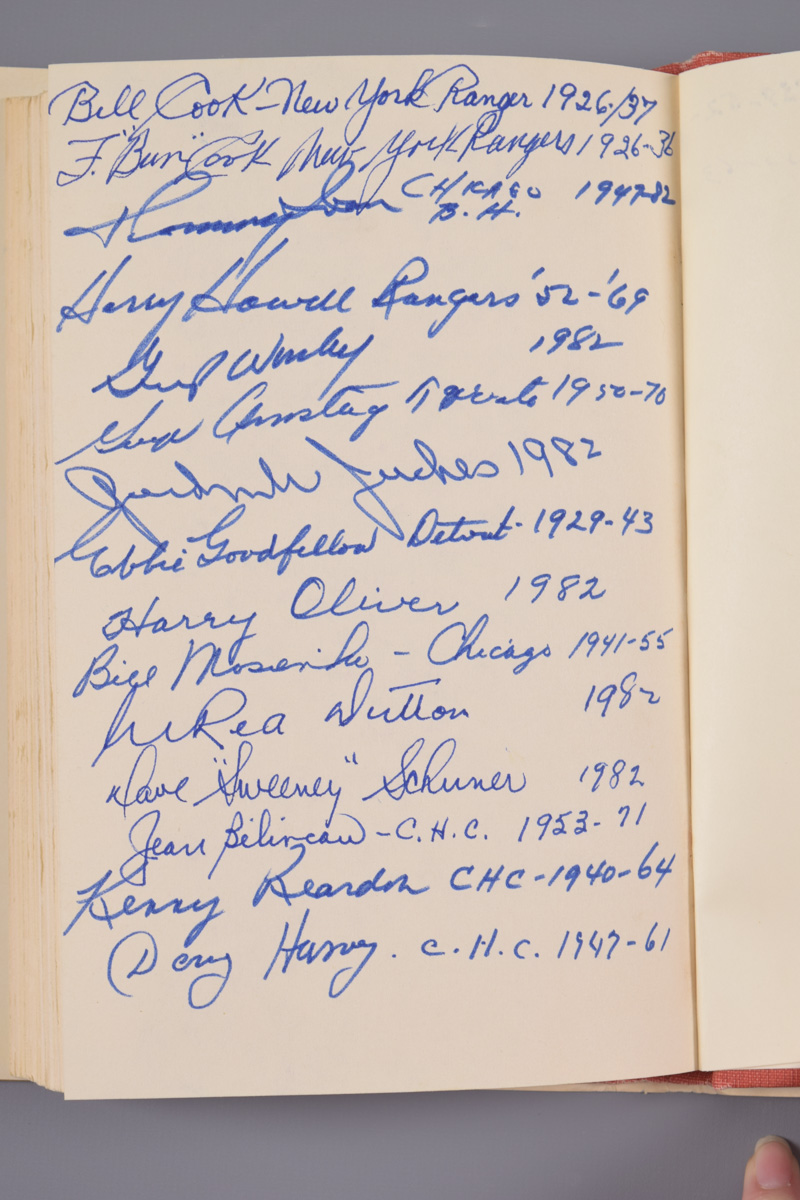 Bill Cook - New York Ranger 1926-/37
F. "Bun" Cook New York Rangers 1926-36
Tommy Ivan CHICAGO 1947-82
B. H.
Harry Howell Rangers '52-'69
Gump Worsley 1982
George Armstrong Toronto 1950-70
1982
Ebbie Goodfellow Detroit - 1929-43
Harry Oliver 1982
Bill Mosienko - Chicago 1941-55
Mervyn "Red" Dutton 1982
Dave "Sweeney" Schriner 1982
Jean Béliveau - C.H.C. 1953-71
Kenny Reardon CHC - 1940-64
Doug Harvey. C.H.C. 1947-61